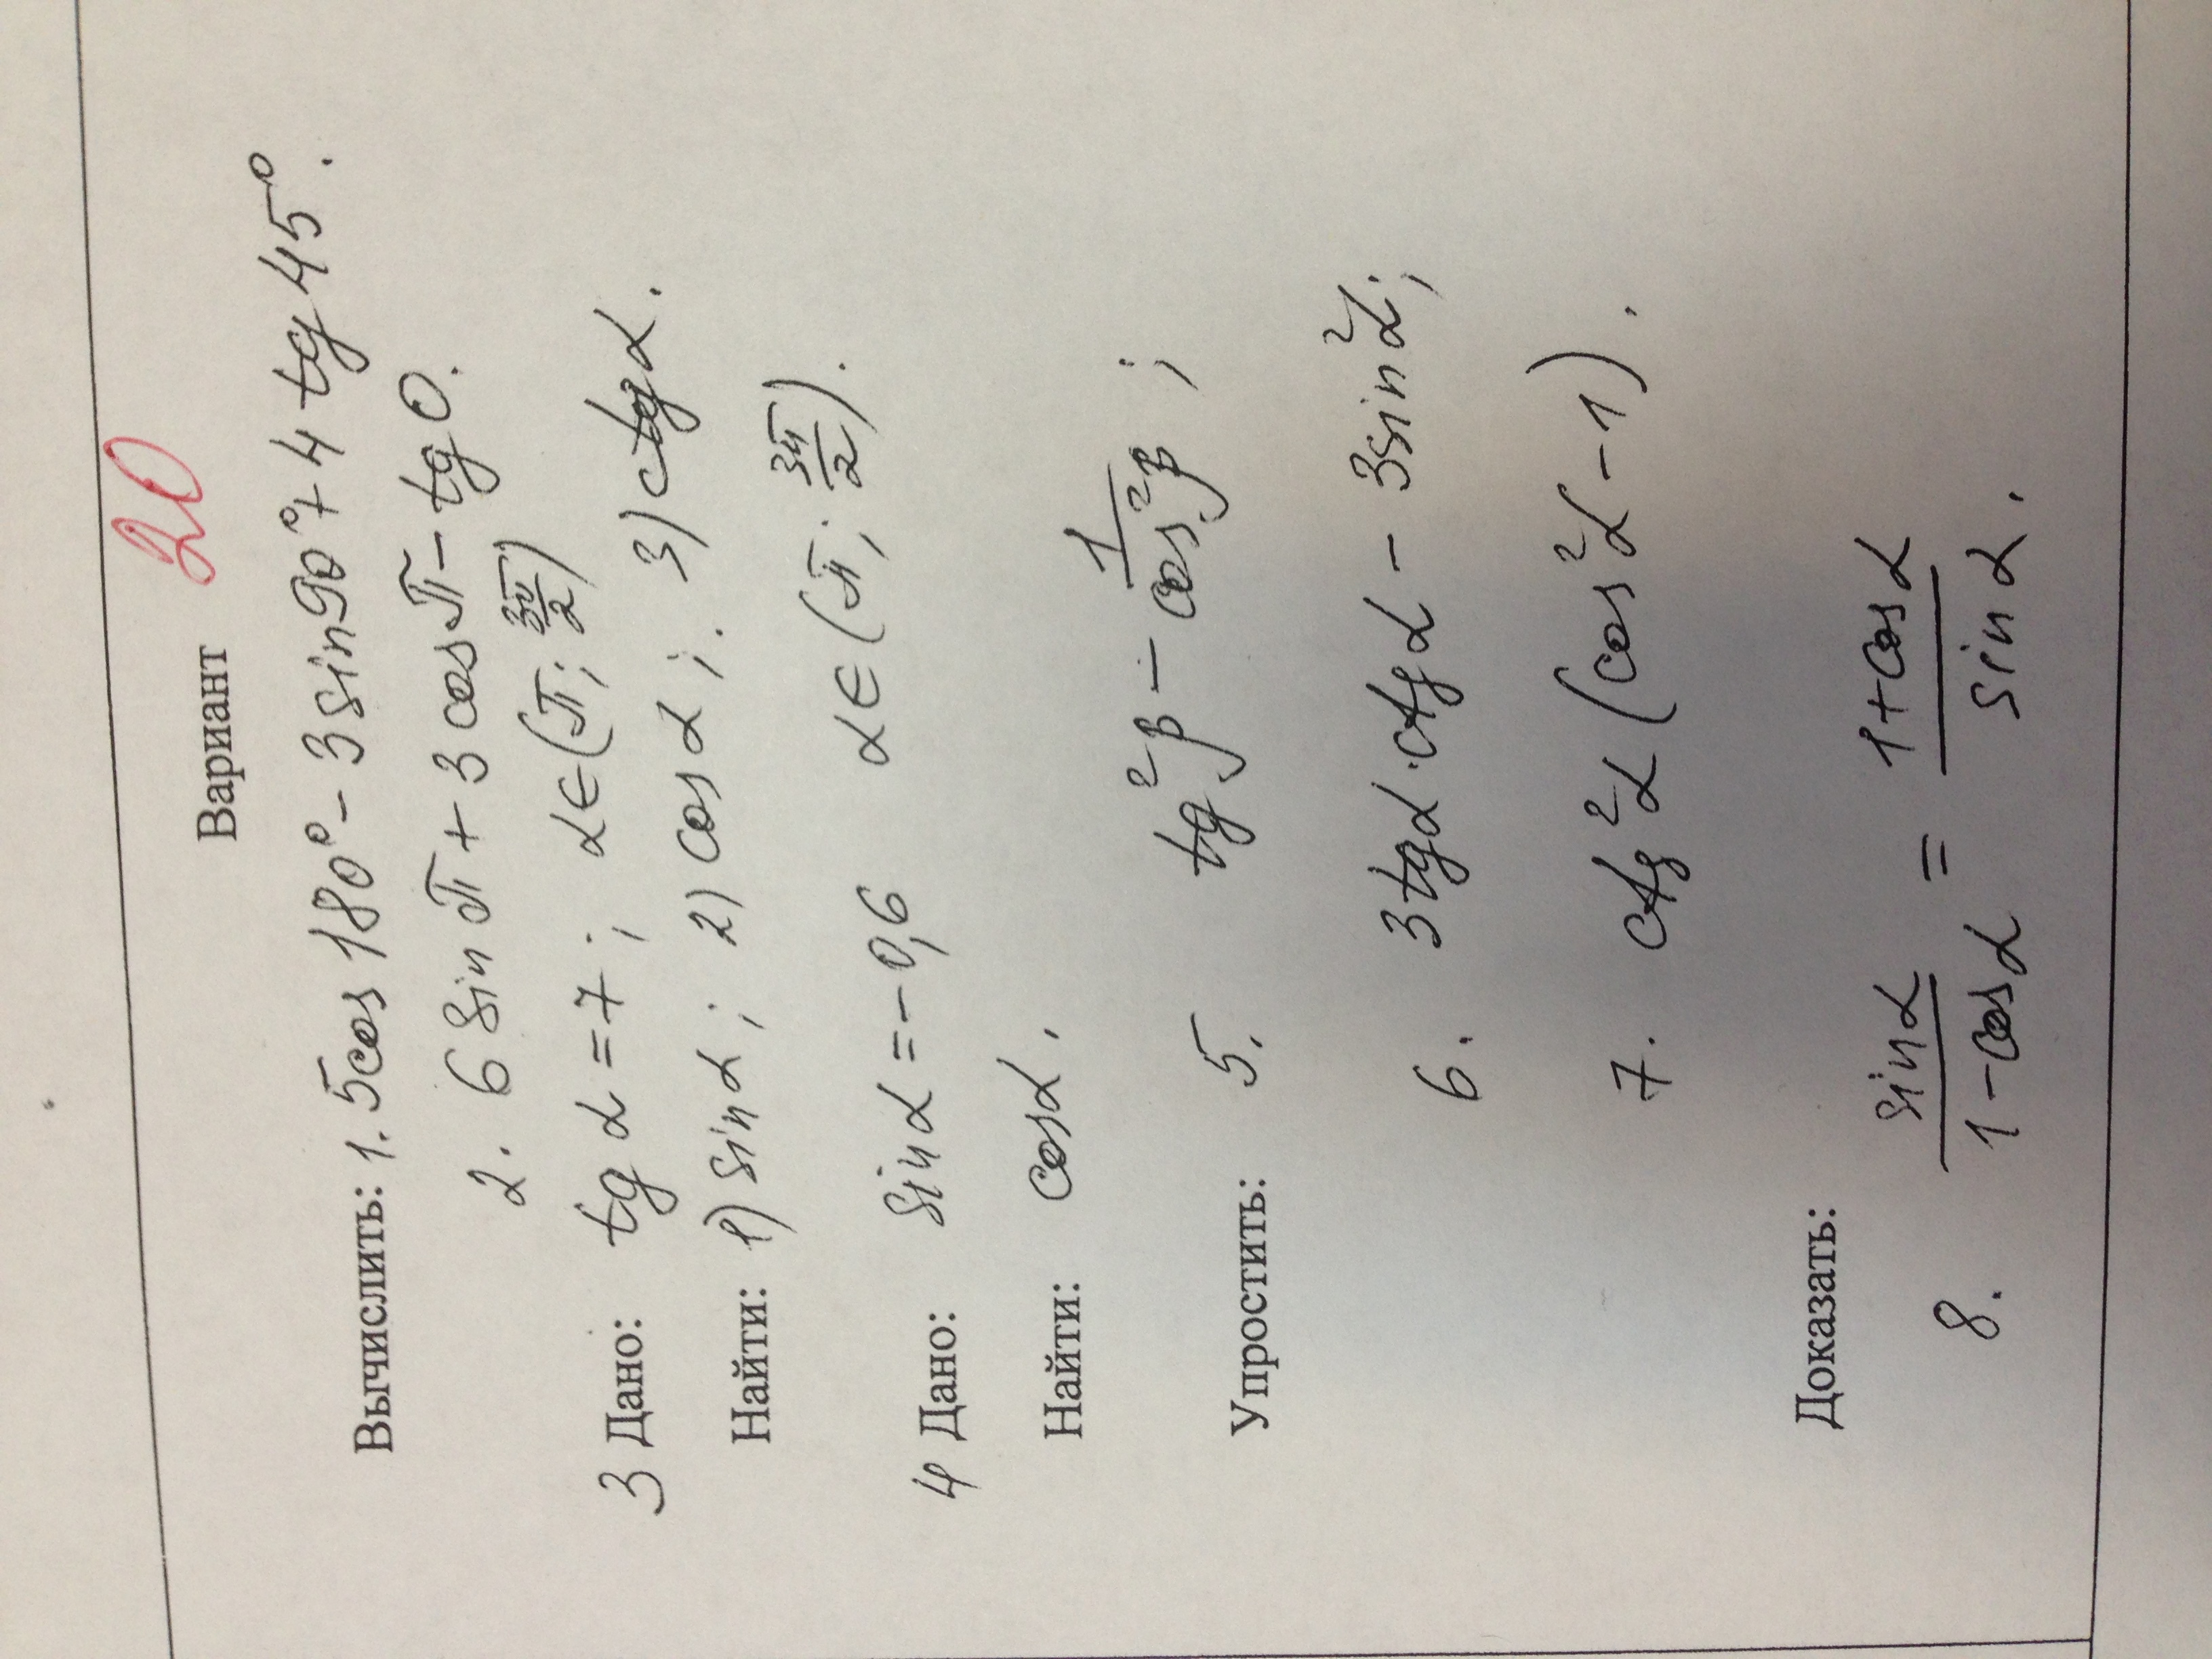 Вариант 20
Вычислить: 1. 5cos 180° - 3 sin 90° + 4 tg 45°.
2. 6 sin π + 3 cos π - tg 0.
3 Дано: tg α = 7; α ∈ (π; 3π/2)
Найти: 1) sin α; 2) cos α; 3) ctg α.
4 Дано: sin α = -0,6 α ∈ (π; 3π/2).
Найти: cos α.
Упростить: 5. tg²β - 1/cos²β;
6. 3 tg α · ctg α - 3 sin²α;
7. ctg²α (cos²α - 1).
Доказать:
8. sin α/(1 - cos α) = (1 + cos α)/sin α.